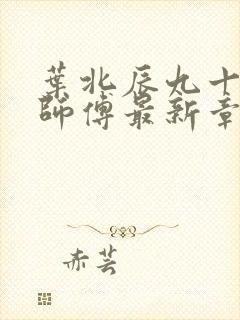 葉北辰九十
師傅最新章
赤芸